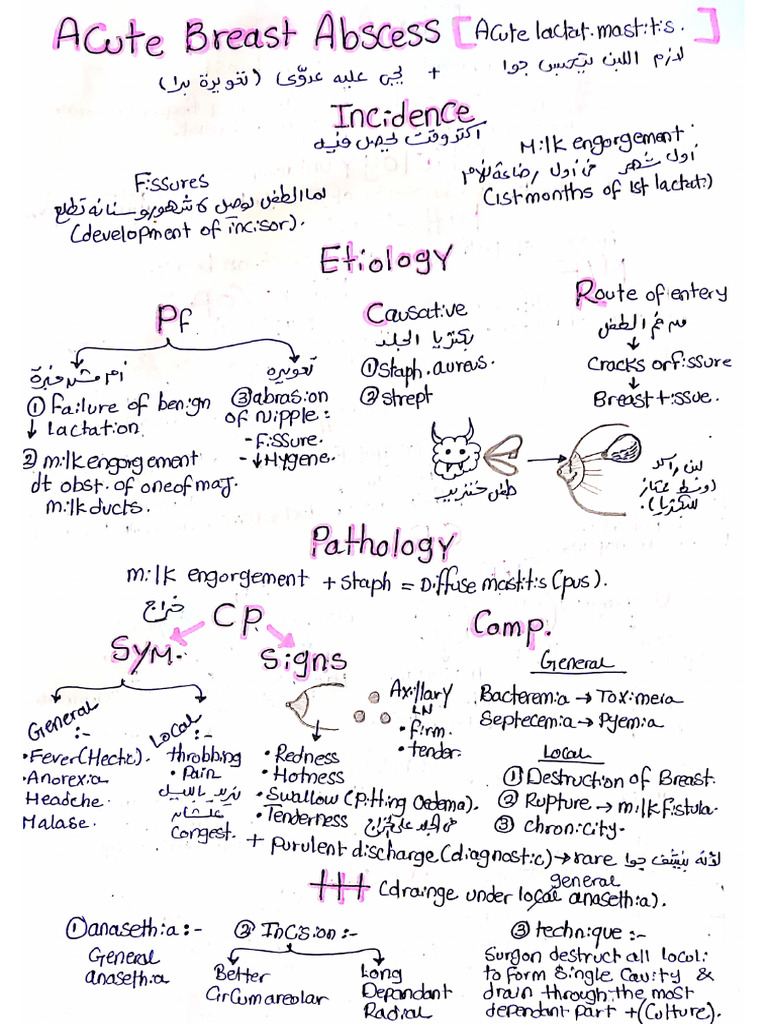 Acute Breast Abscess [Acute lactat. mastitis.]
لازم اللبن يتحبس جوا + يجي عليه عدوى (تخويرة برا)
Incidence
اكتر وقت يحصل فيه
Fissures
لما الطفل يوصل ٦ شهور وسنانه تطلع
(development of incisor).
Milk engorgement
أول شهر من أول رضاعة للأم
(1st months of 1st lactat:)
Etiology
Pf
① Failure of benign
↓ Lactation
② milk engorgement
dt obst. of one of maj.
milk ducts.
تعويره
③ abrasion
of Nipple:
- Fissure.
- ↓ Hygene.
Causative
بكتريا الجلد
① Staph. aureus.
② strept
Route of entery
من فم الطفل
↓
Cracks or fissure
↓
Breast tissue.
لبن راكد
(وسط ممتاز
للبكتريا).
Pathology
milk engorgement + staph = Diffuse mastitis (pus).
خراج
CP.
Sym.
General
:-
• Fever (Hectic).
• Anorexia
Headche
Malase.
Local
:-
throbbing
• Pain
بالليل
علشان
Congest.
Signs
• Redness
• Hotness
• Swallow (Pitting Oedema).
• Tenderness
Axillary
LN
• firm.
• tender.
+ Purulent discharge (diagnostic) → rare لأنه جوا
Comp.
General
Bacteremia → Toximeia
Septecemia → Pyemia
Local
① Destruction of Breast.
② Rupture → milk fistula.
③ chronicity.
+++ (drainge under local general anasethia).
① anasethia :-
General
anasethia
② Incision :-
Better
Circumareolar
Long
Dependant
Radial
③ technique :-
Surgon destruct all loculi
to form Single Cavity &
drain through the most
dependant part + (Culture).